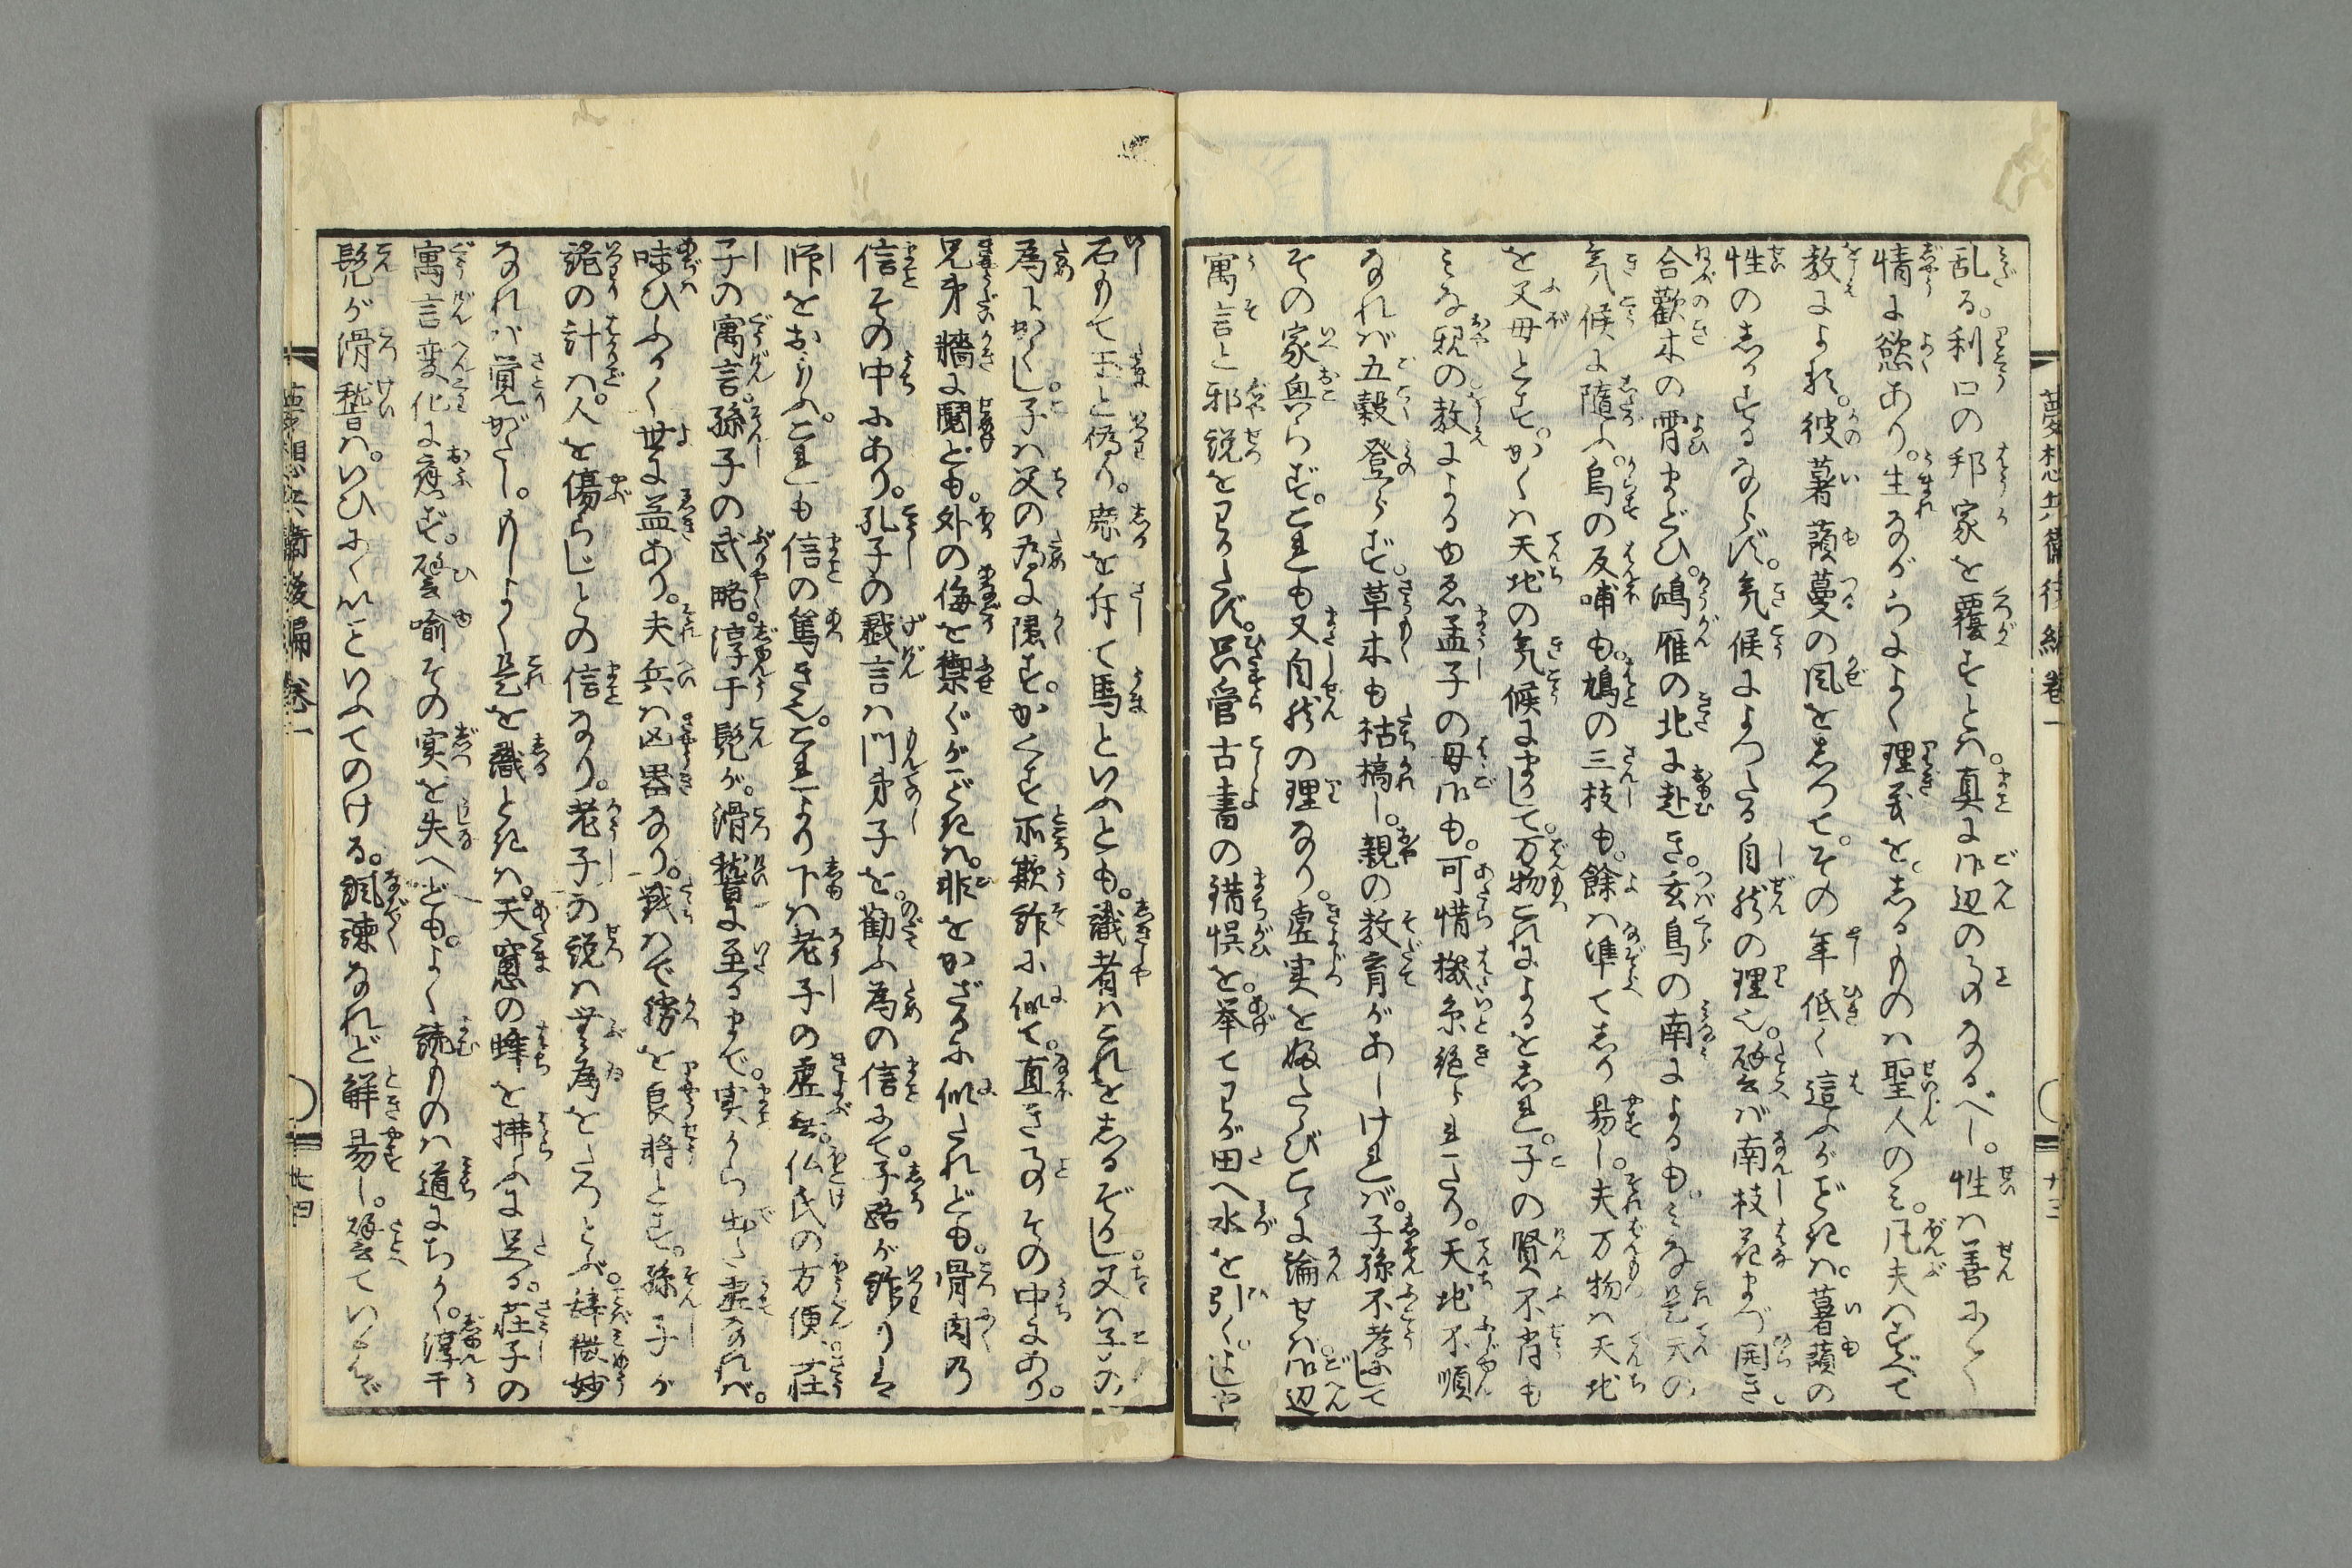 乱る。利口の邦家を覆すとは。真に此辺の事なるべし。性は善にして
情に慾あり。生ながらによく理義を。しるものは聖人のみ。凡夫はすべて
教による。彼薯蕷蔓の風をまつて。その年低く這ふがごときは。薯蕷の
性のしかするならず。気候によつたる自然の理也。譬ば南枝花まづ開き
合歓木の宵まどひ。鴻雁の北に赴き。玄鳥の南によるもみな是天の
気候に随ふ。烏の反哺も。鳩の三枝も。餘は準てしり易し。夫万物は天地
を父母とす。かくは天地の気候にまかして。万物これによるをしれ。子の賢不肖も
みな親の教によるゆゑ孟子の母御も。可惜機糸絶られたり。天地不順
なれば五穀登らず。草木も枯槁し。親の教育があしければ。子孫不孝にして
その家興らず。これも又自然の理なり。虚実を媒たらびこゝに論せば此辺
寓言と邪説をわかたず。只管古書の錯悞を。挙てわが田へ水を引く。よしや
石もて玉と偽り。鹿を斥て馬といふとも。識者はこれをしるぞかし。父は子の
為にかくし。子は父の為に隠す。かくす所欺詐に似て。直き事その中にあり。
兄弟牆に鬩ども。外の侮を禦ぐがごときは。非をかざるに似たれども。骨肉の
信その中にあり。孔子の戯言は門弟子を。勧ふ為の信にて。子路が詐りは
師をおもふ。これも信の篤き也。これより下は老子の虚無。仏氏の方便。荘
子の寓言。孫子の武略。淳于髡が。滑稽に至るまで。実から出た虚なれば。
味ひふかく世に益あり。夫兵は凶器なり。戦はで勝を良将とす。孫子が
詭の計は。人を傷らじとの信なり。老子の説は無為をたつとぶ。辞微妙
なれば覚がたし。もしよく是を識ときは。天窓の蜂を拂ふに足る。荘子の
寓言変化に応ず。譬喩その実を失へども。よく読ものは道にちかく。淳于
髡が滑稽は。いひにくいことをいふてのける。諷諫なれど解易し。譬ていはゞ
夢想兵衛後編巻一
廿三
夢想兵衛後編巻一
廿四